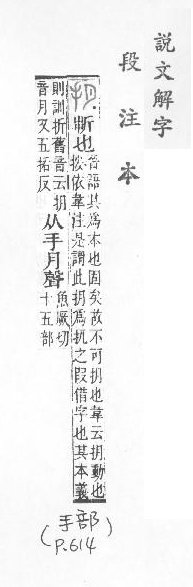 說文解字
段注本
抈 斷也 晉語其爲本也固矣故不可抈也韋云抈動也
按依韋注是謂此抈爲扤之假借字也其本義
則訓折舊音云抈
音月又五括反
从手月聲 魚厥切
十五部
(手部)
P.614